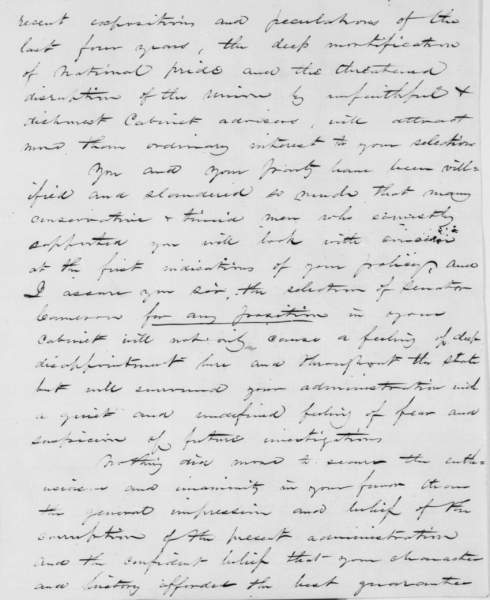 recent expositions and peculations of the
last four years, the deep mortification
of National pride and the threatened
disruption of the Union by unfaithful &
dishonest Cabinet advisers, will attract
more than ordinary interest to your selections
You and your friends have been vill=
ified and slandered so much that many
conservative & timid men who earnestly
supported you will look with
at the first indications of your policy, and
I assure you sir, the selection of Senator
Cameron for any position in your
Cabinet will not only cause a feeling of deep
disappointment here and throughout the state
but will surround your administration with
a quiet and undefined feeling of fear and
suspicion of future investigations
Nothing did more to secure the enth-
usiasm and unanimity in your favor than
the general impression and belief of the
corruption of the present administration
and the confident belief that your character
and history afforded the best guarantee